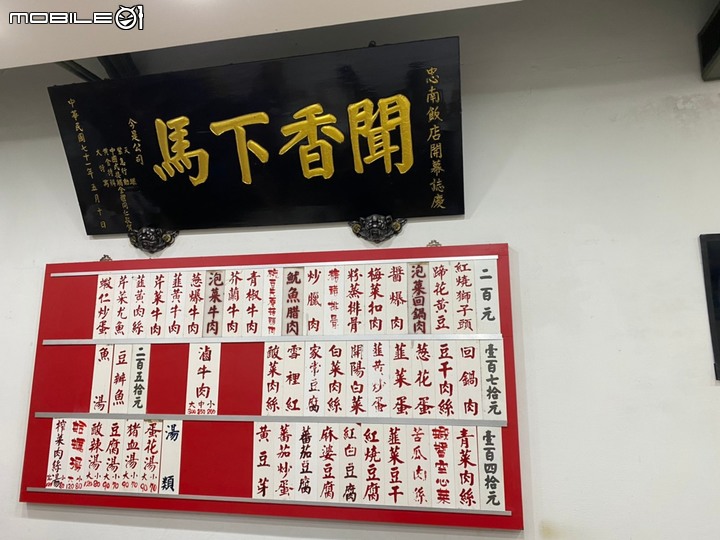 MOBILE01
忠南飯店開幕誌慶
聞香下馬
中華民國七十一年五月十日
二百元
紅燒獅子頭
蹄花黃豆
泡菜回鍋肉
醬爆肉
梅菜扣肉
粉蒸排骨
炒臘肉
魷魚腊肉
青椒牛肉
芥蘭牛肉
泡菜牛肉
蔥爆牛肉
韭黃牛肉
芹菜牛肉
韭黃肉絲
芹菜尤魚
蝦仁炒蛋
壹百七拾元
回鍋肉
豆干肉絲
蔥花蛋
韮菜蛋
韭黃炒蛋
開陽白菜
白菜肉絲
家常豆腐
雪裡紅
酸菜肉絲
滷牛肉
大中小
300 250 200
二百五拾元
豆辦魚
魚湯
壹百四拾元
青菜肉絲
苦瓜肉絲
韮菜豆干
紅燒豆腐
紅白豆腐
麻婆豆腐
蕃茄豆腐
蕃茄炒蛋
黃豆芽
湯類
蛋花湯
豬血湯
豆腐湯
酸辣湯
榨菜肉絲湯